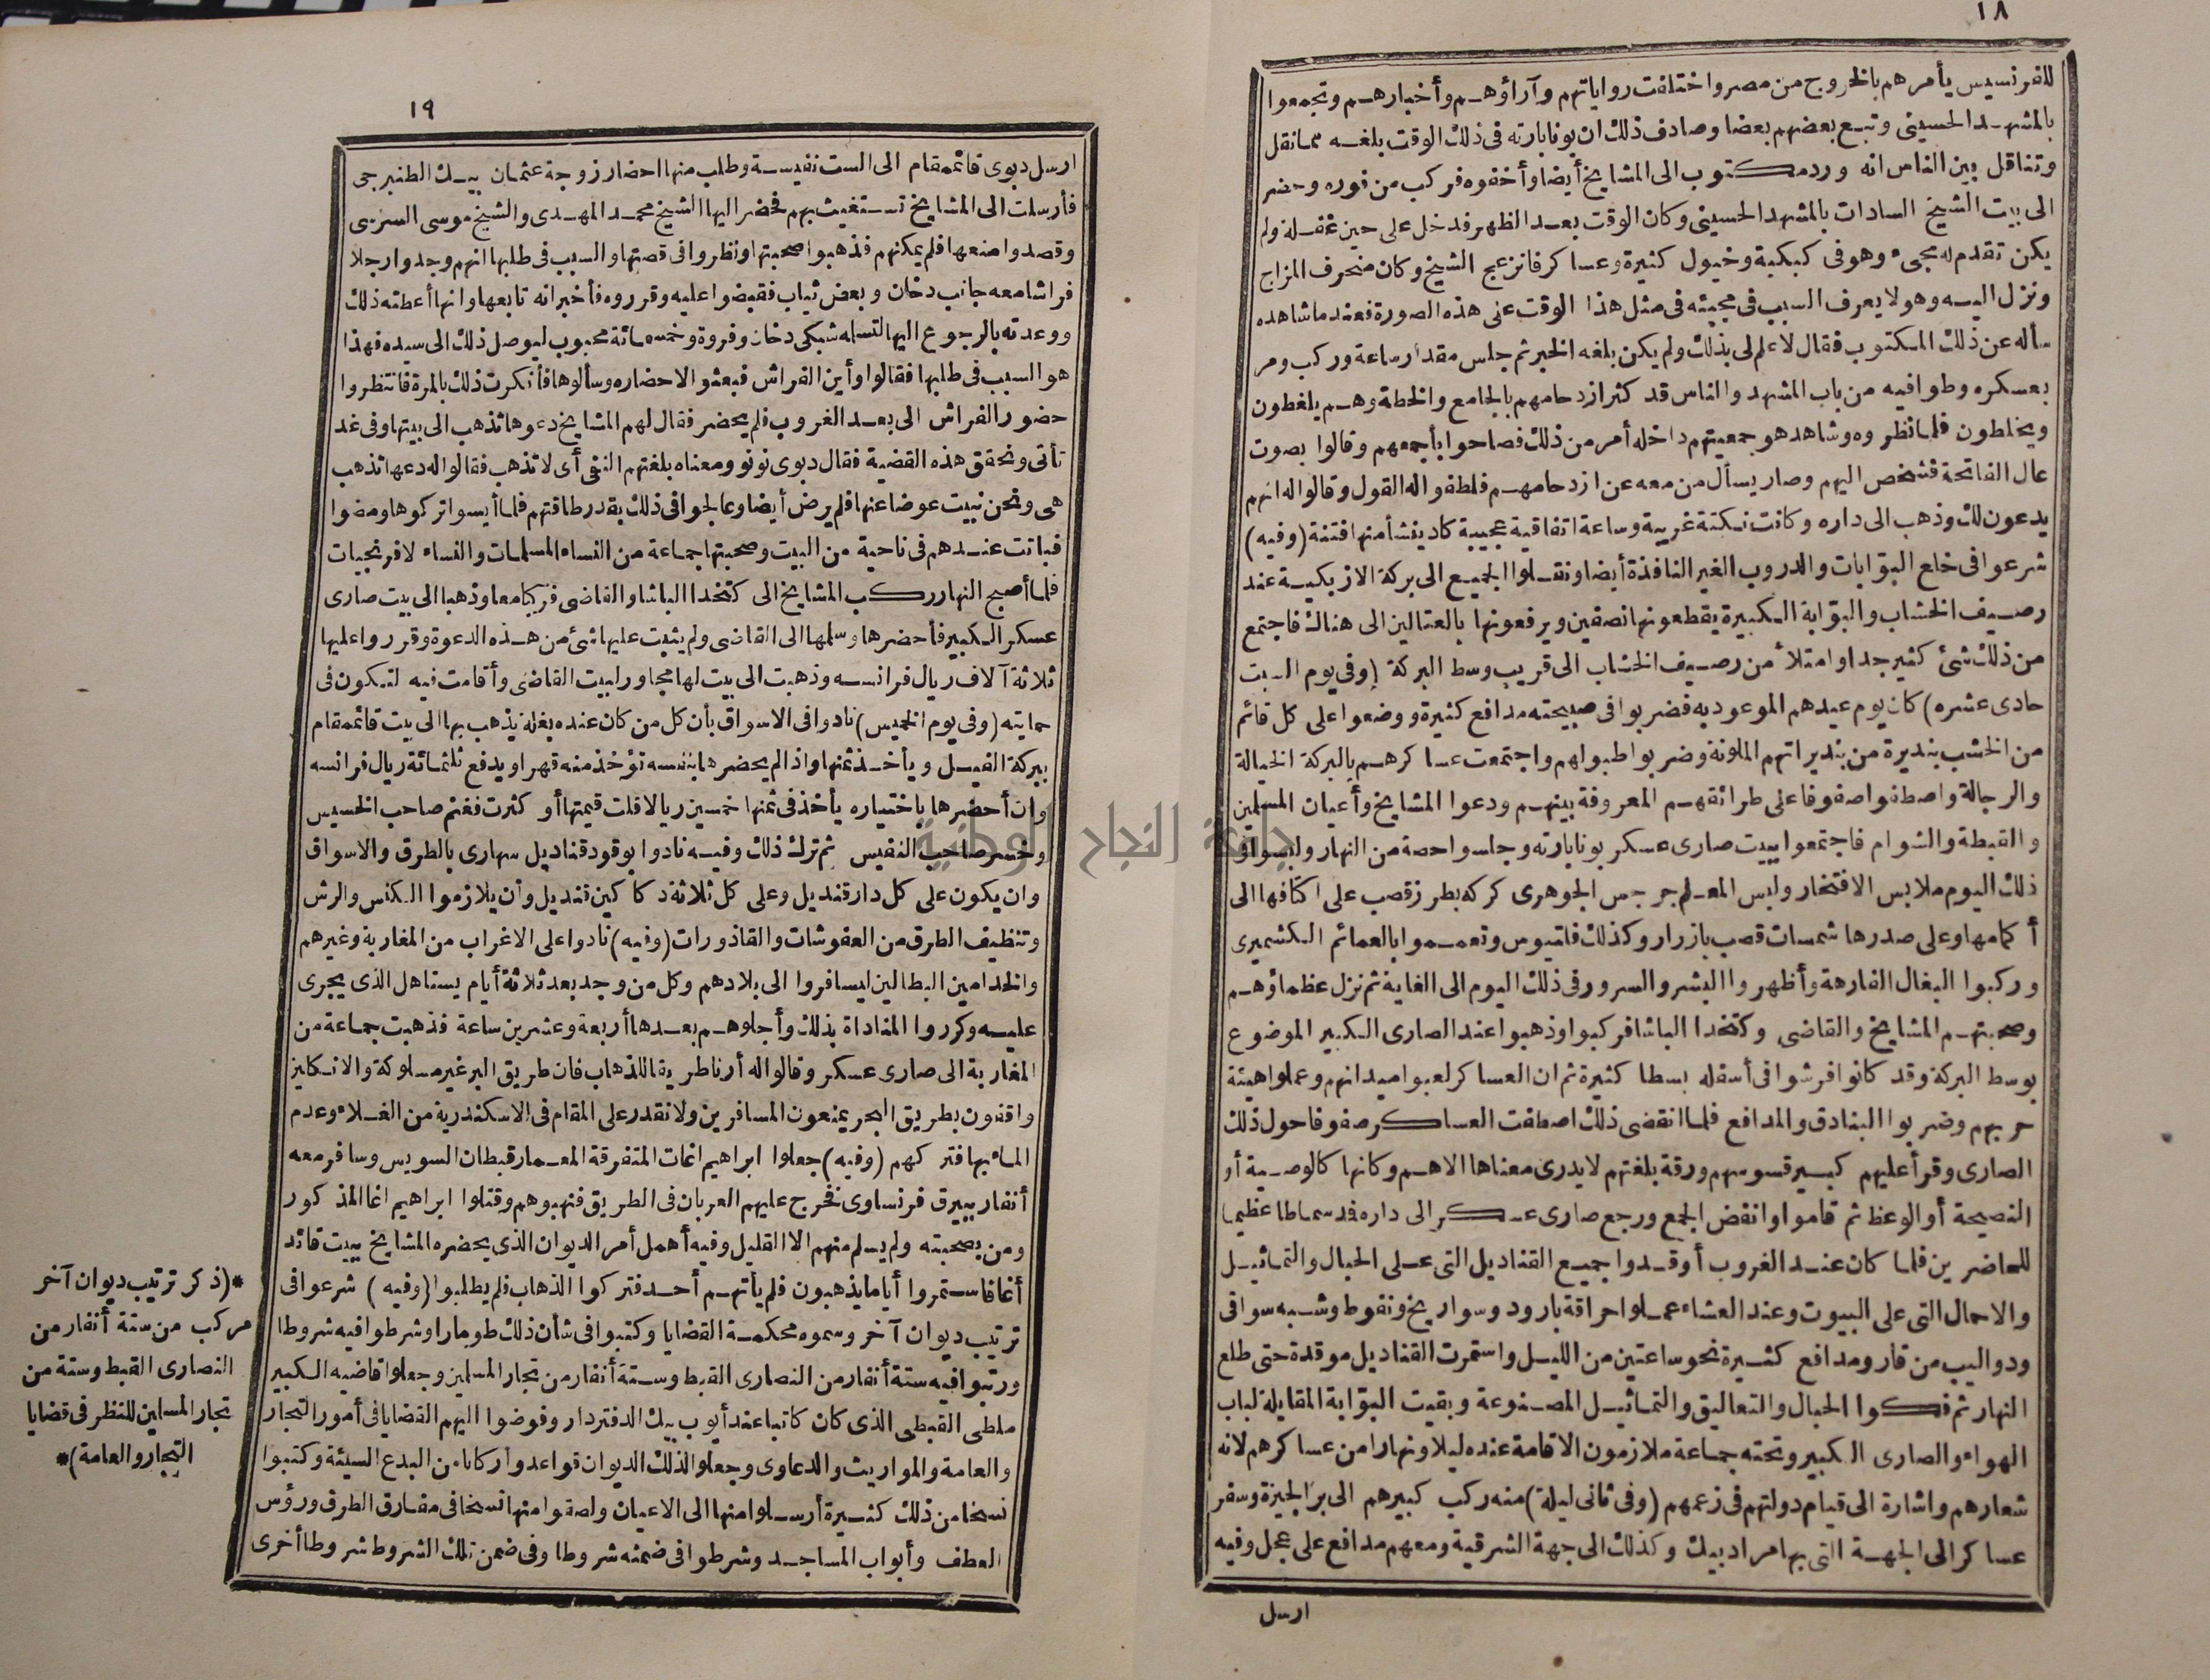 ١٨
للفرنسيس يأمرهم بالخروج من مصر واختلفت رواياتهم وآراؤهم وأخبارهم وتجمعوا
بالمشهد الحسينى وتبع بعضهم بعضا وصادف ذلك ان بونابارته فى ذلك الوقت بلغه مما نقل
وتناقل بين الناس انه ورد مكتوب الى المشايخ أيضا وأخفوه فركب من فوره وحضر
الى بيت الشيخ السادات بالمشهد الحسينى وكان الوقت بعد الظهر فدخل على حين غفلة ولم
يكن تقدم له مجىء وهو فى كبكبة وخيول كثيرة وعساكر فانزعج الشيخ وكان منحرف المزاج
ونزل اليه وهو لا يعرف السبب فى مجيئه فى مثل هذا الوقت على هذه الصورة فعندما شاهده
سأله عن ذلك المكتوب فقال لاعلم لى بذلك ولم يكن بلغه الخبر ثم جلس مقدار ساعة وركب ومر
بعسكره وطوافيه من باب المشهد والناس قد كثر ازدحامهم بالجامع والخطة وهم يلغطون
ويخلطون فلما نظروه وشاهد هو جمعيتهم داخله أمر من ذلك فصاحوا بأجمعهم وقالوا بصوت
عال الفاتحة فشخص اليهم وصار يسأل من معه عن ازدحامهم فلطفوا له القول وقالوا له انهم
يدعون لك وذهب الى داره وكانت نكتة غريبة وساعة اتفاقية عجيبة كاد ينشأ منها فتنة (وفيه)
شرعوا فى خلع البوّابات والدروب الغير النافذة أيضا ونقلوا الجميع الى بركة الازبكية عند
رصيف الخشاب والبوّابة الكبيرة يقطعونها نصفين ويرفعونها بالعتالين الى هناك فاجتمع
من ذلك شئ كثير جدا وامتلأ من رصيف الخشاب الى قريب وسط البركة (وفى يوم السبت
حادى عشره) كان يوم عيدهم الموعود به فضربوا فى صبيحته مدافع كثيرة ووضعوا على كل قائم
من الخشب بنديرة من بنديراتهم الملونة وضربوا طبولهم واجتمعت عساكرهم بالبركة الخيالة
والرجالة واصطفوا صفوفا على طرائقهم المعروفة بينهم ودعوا المشايخ وأعيان المسلمين
والقبطة والشوام فاجتمعوا ببيت صارى عسكر بونابارته وجلسوا حصة من النهار ولبسوا فى
ذلك اليوم ملابس الافتخار ولبس المعلم جرجس الجوهرى كركه بطرز قصب على اكتافها الى
أكمامها وعلى صدرها شمسات قصب بازرار وكذلك فلتيوس وتعمموا بالعمائم الكشميرى
وركبوا البغال الفارهة وأظهروا البشر والسرور فى ذلك اليوم الى الغاية ثم نزل عظماؤهم
وصحبتهم المشايخ والقاضى وكتخدا الباشا فركبوا وذهبوا عند الصارى الكبير الموضوع
بوسط البركة وقد كانوا فرشوا فى أسفله بسطا كثيرة ثم ان العساكر لعبوا ميدانهم وعملوا هيئة
حربهم وضربوا البنادق والمدافع فلما انقضى ذلك اصطفت العساكر صفوفا حول ذلك
الصارى وقرأ عليهم كبير قسوسهم ورقة بلغتهم لا يدرى معناها الا هم وكانها كالوصية أو
النصيحة أو الوعظ ثم قاموا وانفض الجمع ورجع صارى عسكر الى داره فمد سماطا عظيما
للحاضرين فلما كان عند الغروب أوقدوا جميع القناديل التى على الحبال والتماثيل
والاحمال التى على البيوت وعند العشاء عملوا حراقة بارود وسواريخ ونفوط وشبه سواقى
ودواليب من نار ومدافع كثيرة نحو ساعتين من الليل واستمرت القناديل موقدة حتى طلع
النهار ثم فكوا الحبال والتعاليق والتماثيل المصنوعة وبقيت البوّابة المقابلة لباب
الهواء والصارى الكبير وتحته جماعة ملازمون الاقامة عنده ليلا ونهارا من عساكرهم لانه
شعارهم واشارة الى قيام دولتهم فى زعمهم (وفى ثانى ليلة) منه ركب كبيرهم الى بر الجيزة وسفر
عساكر الى الجهة التى بها مراد بيك وكذلك الى جهة الشرقية ومعهم مدافع على عجل وفيه
ارسل
١٩
ارسل دبوى قائمقام الى الست نفيسة وطلب منها احضار زوجة عثمان بيك الطنبرجى
فأرسلت الى المشايخ تستغيث بهم فحضر اليها الشيخ محمد المهدى والشيخ موسى السرسى
وقصدوا منعها فلم يمكنهم فذهبوا صحبتها ونظروا فى قصتها والسبب فى طلبها انهم وجدوا رجلا
فراشا معه جانب دخان وبعض ثياب فقبضوا عليه وقرروه فأخبر انه تابعها وانها أعطته ذلك
ووعدته بالرجوع اليها لتسلمه شبكى دخان وفروة وخمسمائة محبوب ليوصل ذلك الى سيده فهذا
هو السبب فى طلبها فقالوا وأين الفراش فبعثوا لاحضاره وسألوها فأنكرت ذلك بالمرة فانتظروا
حضور الفراش الى بعد الغروب فلم يحضر فقال لهم المشايخ دعوها تذهب الى بيتها وفى غد
تأتى ونحقق هذه القضية فقال دبوى نونو ومعناه بلغتهم النفى أى لا تذهب فقالوا له دعها تذهب
هى ونحن نبيت عوضا عنها فلم يرض أيضا وعالجوا فى ذلك بقدر طاقتهم فلما أيسوا تركوها ومضوا
فباتت عندهم فى ناحية من البيت وصحبتها جماعة من النساء المسلمات والنساء الافرنجيات
فلما أصبح النهار ركب المشايخ الى كتخدا الباشا والقاضى فركبا معا وذهبا الى بيت صارى
عسكر الكبير فأحضرها وسلمها الى القاضى ولم يثبت عليها شئ من هذه الدعوة وقرروا عليها
ثلاثة آلاف ريال فرانسه وذهبت الى بيت لها مجاور لبيت القاضى وأقامت فيه لتكون فى
حمايته (وفى يوم الخميس) نادوا فى الاسواق بأن كل من كان عنده بغلة يذهب بها الى بيت قائمقام
ببركة الفيل ويأخذ ثمنها واذا لم يحضرها بنفسه تؤخذ منه قهرا ويدفع ثلثمائة ريال فرانسه
وان أحضرها باختياره يأخذ فى ثمنها خمسين ريالا قلت قيمتها أو كثرت فغنم صاحب الخسيس
وخسر صاحب النفيس ثم ترك ذلك وفيه نادوا بوقود قناديل سهارى بالطرق والاسواق
وان يكون على كل دار قنديل وعلى كل ثلاثة دكاكين قنديل وأن يلازموا الكنس والرش
وتنظيف الطرق من العفوشات والقاذورات (وفيه) نادوا على الاغراب من المغاربة وغيرهم
والخدامين البطالين ليسافروا الى بلادهم وكل من وجد بعد ثلاثة أيام يستاهل الذى يجرى
عليه وكرروا المناداة بذلك وأجلوهم بعدها أربعة وعشرين ساعة فذهبت جماعة من
المغاربة الى صارى عسكر وقالوا له أرنا طريقا للذهاب فان طريق البر غير مسلوكة والانكليز
واقفون بطريق البحر يمنعون المسافرين ولا نقدر على المقام فى الاسكندرية من الغلاء وعدم
الماء بها فتركهم (وفيه) جعلوا ابراهيم اغات المتفرقة المعمار قبطان السويس وسافر معه
أنفار ببيرق فرنساوى فخرج عليهم العربان فى الطريق فنهبوهم وقتلوا ابراهيم اغا المذكور
ومن بصحبته ولم يسلم منهم الا القليل وفيه أهمل أمر الديوان الذى يحضره المشايخ ببيت قائد
أغا فاستمروا أياما يذهبون فلم يأتهم أحد فتركوا الذهاب فلم يطلبوا (وفيه) شرعوا فى
ترتيب ديوان آخر وسموه محكمة القضايا وكتبوا فى شأن ذلك طومارا وشرطوا فيه شروطا
ورتبوا فيه ستة أنفار من النصارى القبط وستة أنفار من تجار المسلمين وجعلوا قاضيه الكبير
ملطى القبطى الذى كان كاتبا عند أيوب بيك الدفتردار وفوضوا اليهم القضايا فى أمور التجار
والعامة والمواريث والدعاوى وجعلوا لذلك الديوان قواعد وأركانا من البدع السيئة وكتبوا
نسخا من ذلك كثيرة أرسلوا منها الى الاعيان ولصقوا منها نسخا فى مفارق الطرق ورؤس
العطف وأبواب المساجد وشرطوا فى ضمنه شروطا وفى ضمن تلك الشروط شروطا أخرى
*(ذكر ترتيب ديوان آخر
مركب من ستة أنفار من
النصارى القبط وستة من
تجار المسلمين للنظر فى قضايا
التجار والعامة)*
جامعة النجاح الوطنية